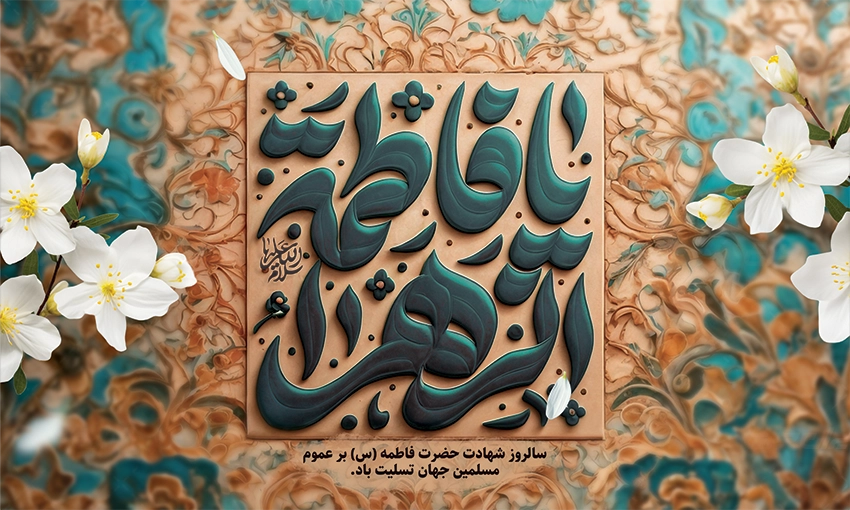 یا فاطمة
الزهرا
سلام الله علیها
سالروز شهادت حضرت فاطمه (س) بر عموم
مسلمین جهان تسلیت باد.